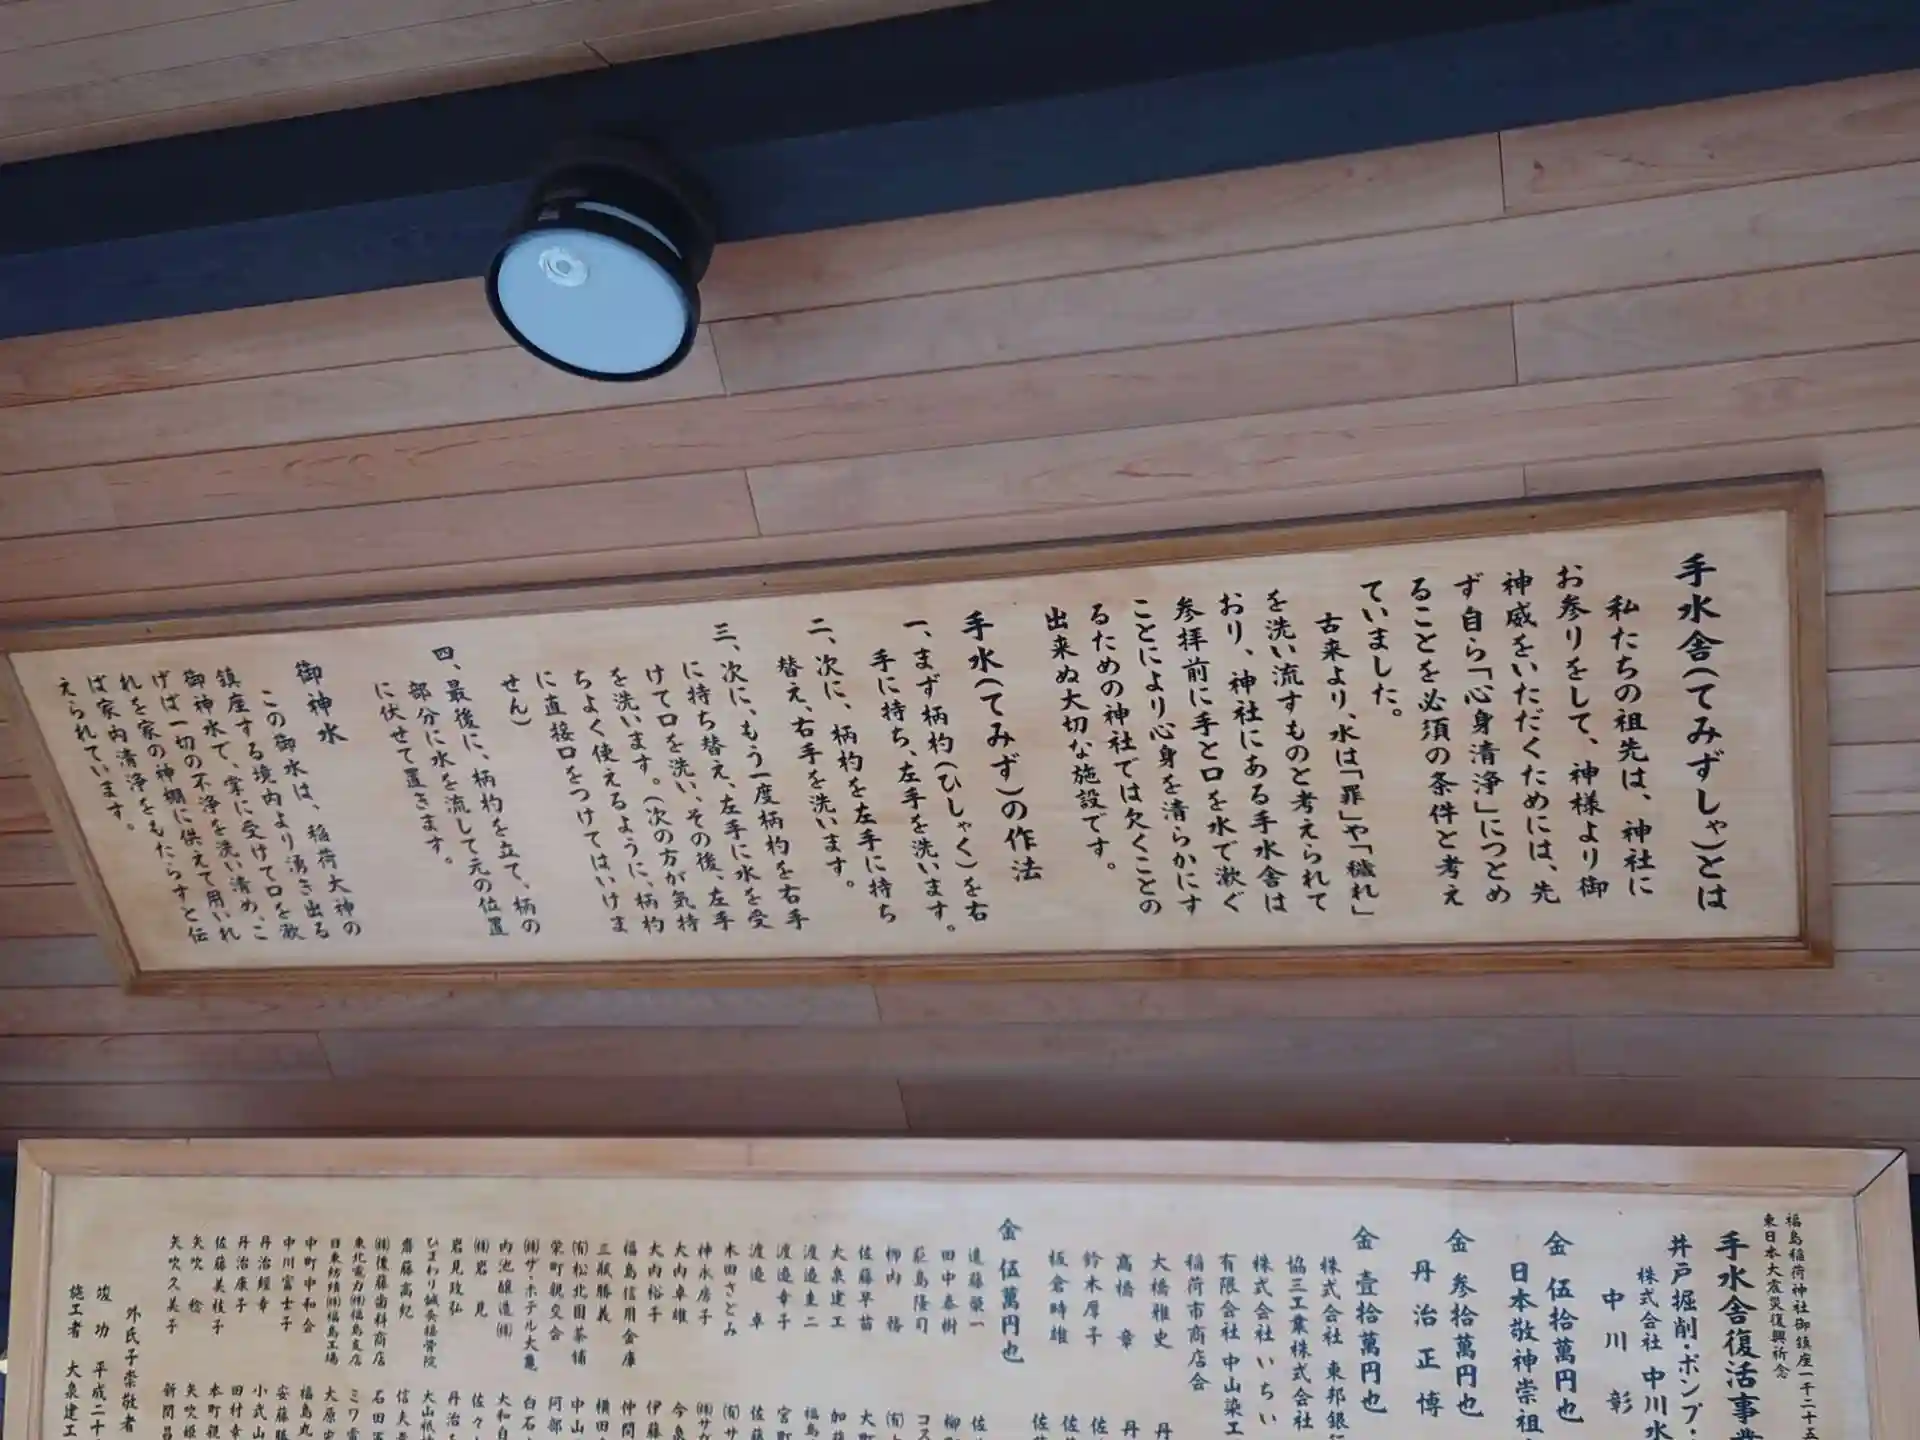 手水舎(てみずしゃ)とは
私たちの祖先は、神社に
お参りをして、神様より御
神威をいただくためには、先
ず自ら「心身清浄」につとめ
ることを必須の条件と考え
ていました。
古来より、水は「罪」や「穢れ」
を洗い流すものと考えられて
おり、神社にある手水舎は
参拝前に手と口を水で漱ぐ
ことにより心身を清らかにす
るための神社では欠くことの
出来ぬ大切な施設です。
手水(てみず)の作法
一、まず柄杓(ひしゃく)を右
手に持ち、左手を洗います。
二、次に、柄杓を左手に持ち
替え、右手を洗います。
三、次に、もう一度柄杓を右手
に持ち替え、左手に水を受
けて口を洗い、その後、左手
を洗います。(次の方が気持
ちよく使えるように、柄杓
に直接口をつけてはいけま
せん)
四、最後に、柄杓を立て、柄の
部分に水を流して元の位置
に伏せて置きます。
御神水
この御水は、稲荷大神の
鎮座する境内より湧き出る
御神水で、常に受けて口を漱
げば一切の不浄を洗い清め、こ
れを家の神棚に供えて用いれ
ば家内清浄をもたらすと伝
えられています。
福島稲荷神社御鎮座一千二十五
東日本大震災復興祈念
手水舎復活事業
井戸掘削・ポンプ・
株式会社 中川水
中川 彰
金 伍拾萬円也
日本敬神崇祖
金 参拾萬円也
丹治正博
金 壹拾萬円也
株式会社 東邦銀行
協三工業株式会社
株式会社 いちい
有限会社 中山染工
稲荷市商店会
大橋雅史
髙橋 章
鈴木厚子
板倉時雄
金 伍萬円也
遠藤榮一
田中泰樹
荻島隆司
柳内 務
佐藤早苗
大泉建工
渡邉圭二
渡邉幸子
渡邉 卓
木田さとみ
神永房子
大内卓雄
大内裕子
福島信用金庫
三瓶勝義
㈲松北園茶舗
栄町親交会
㈱ザ・ホテル大亀
内池醸造㈱
㈱岩見
岩見政弘
ひまわり鍼灸接骨院
齋藤高紀
㈱後藤歯科商店
東北電力㈱福島支店
日東紡績㈱福島工場
中町中和会
中川富士子
丹治經幸
丹治康子
佐藤美枝子
矢吹 稔
矢吹久美子
外氏子崇敬者
竣功 平成二十
施工者 大泉建工